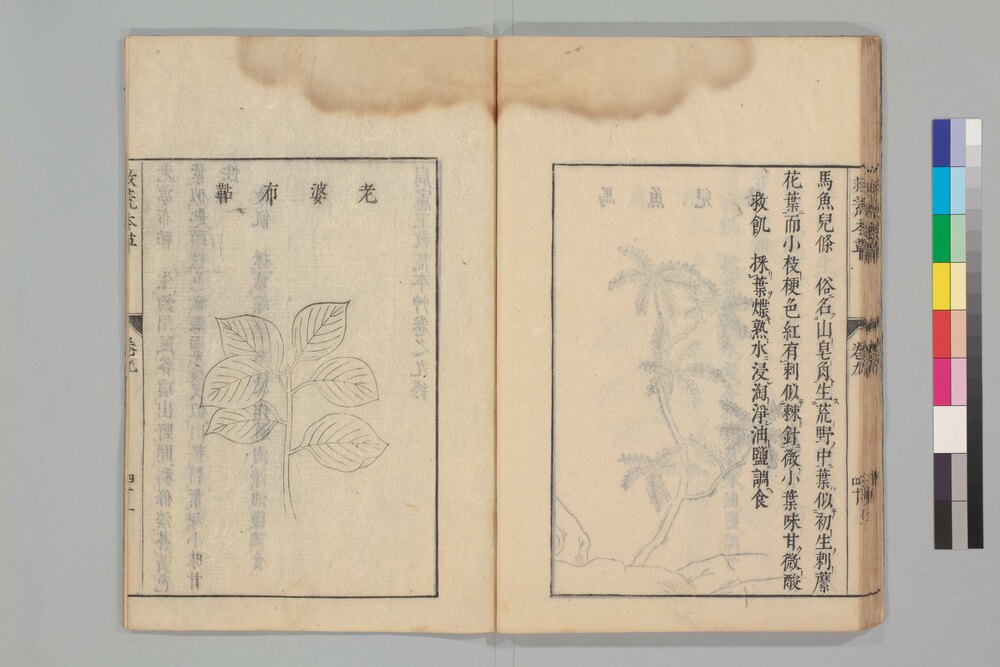 救荒本草
卷九
四十
馬魚兒條　俗名山皂角生荒野中葉似初生刺蘪
花葉而小枝梗色紅有刺似棘針微小葉味甘微酸
救飢　採葉煠熟水浸淘淨油鹽調食
老婆布鞊
救荒本草
卷九
四十一